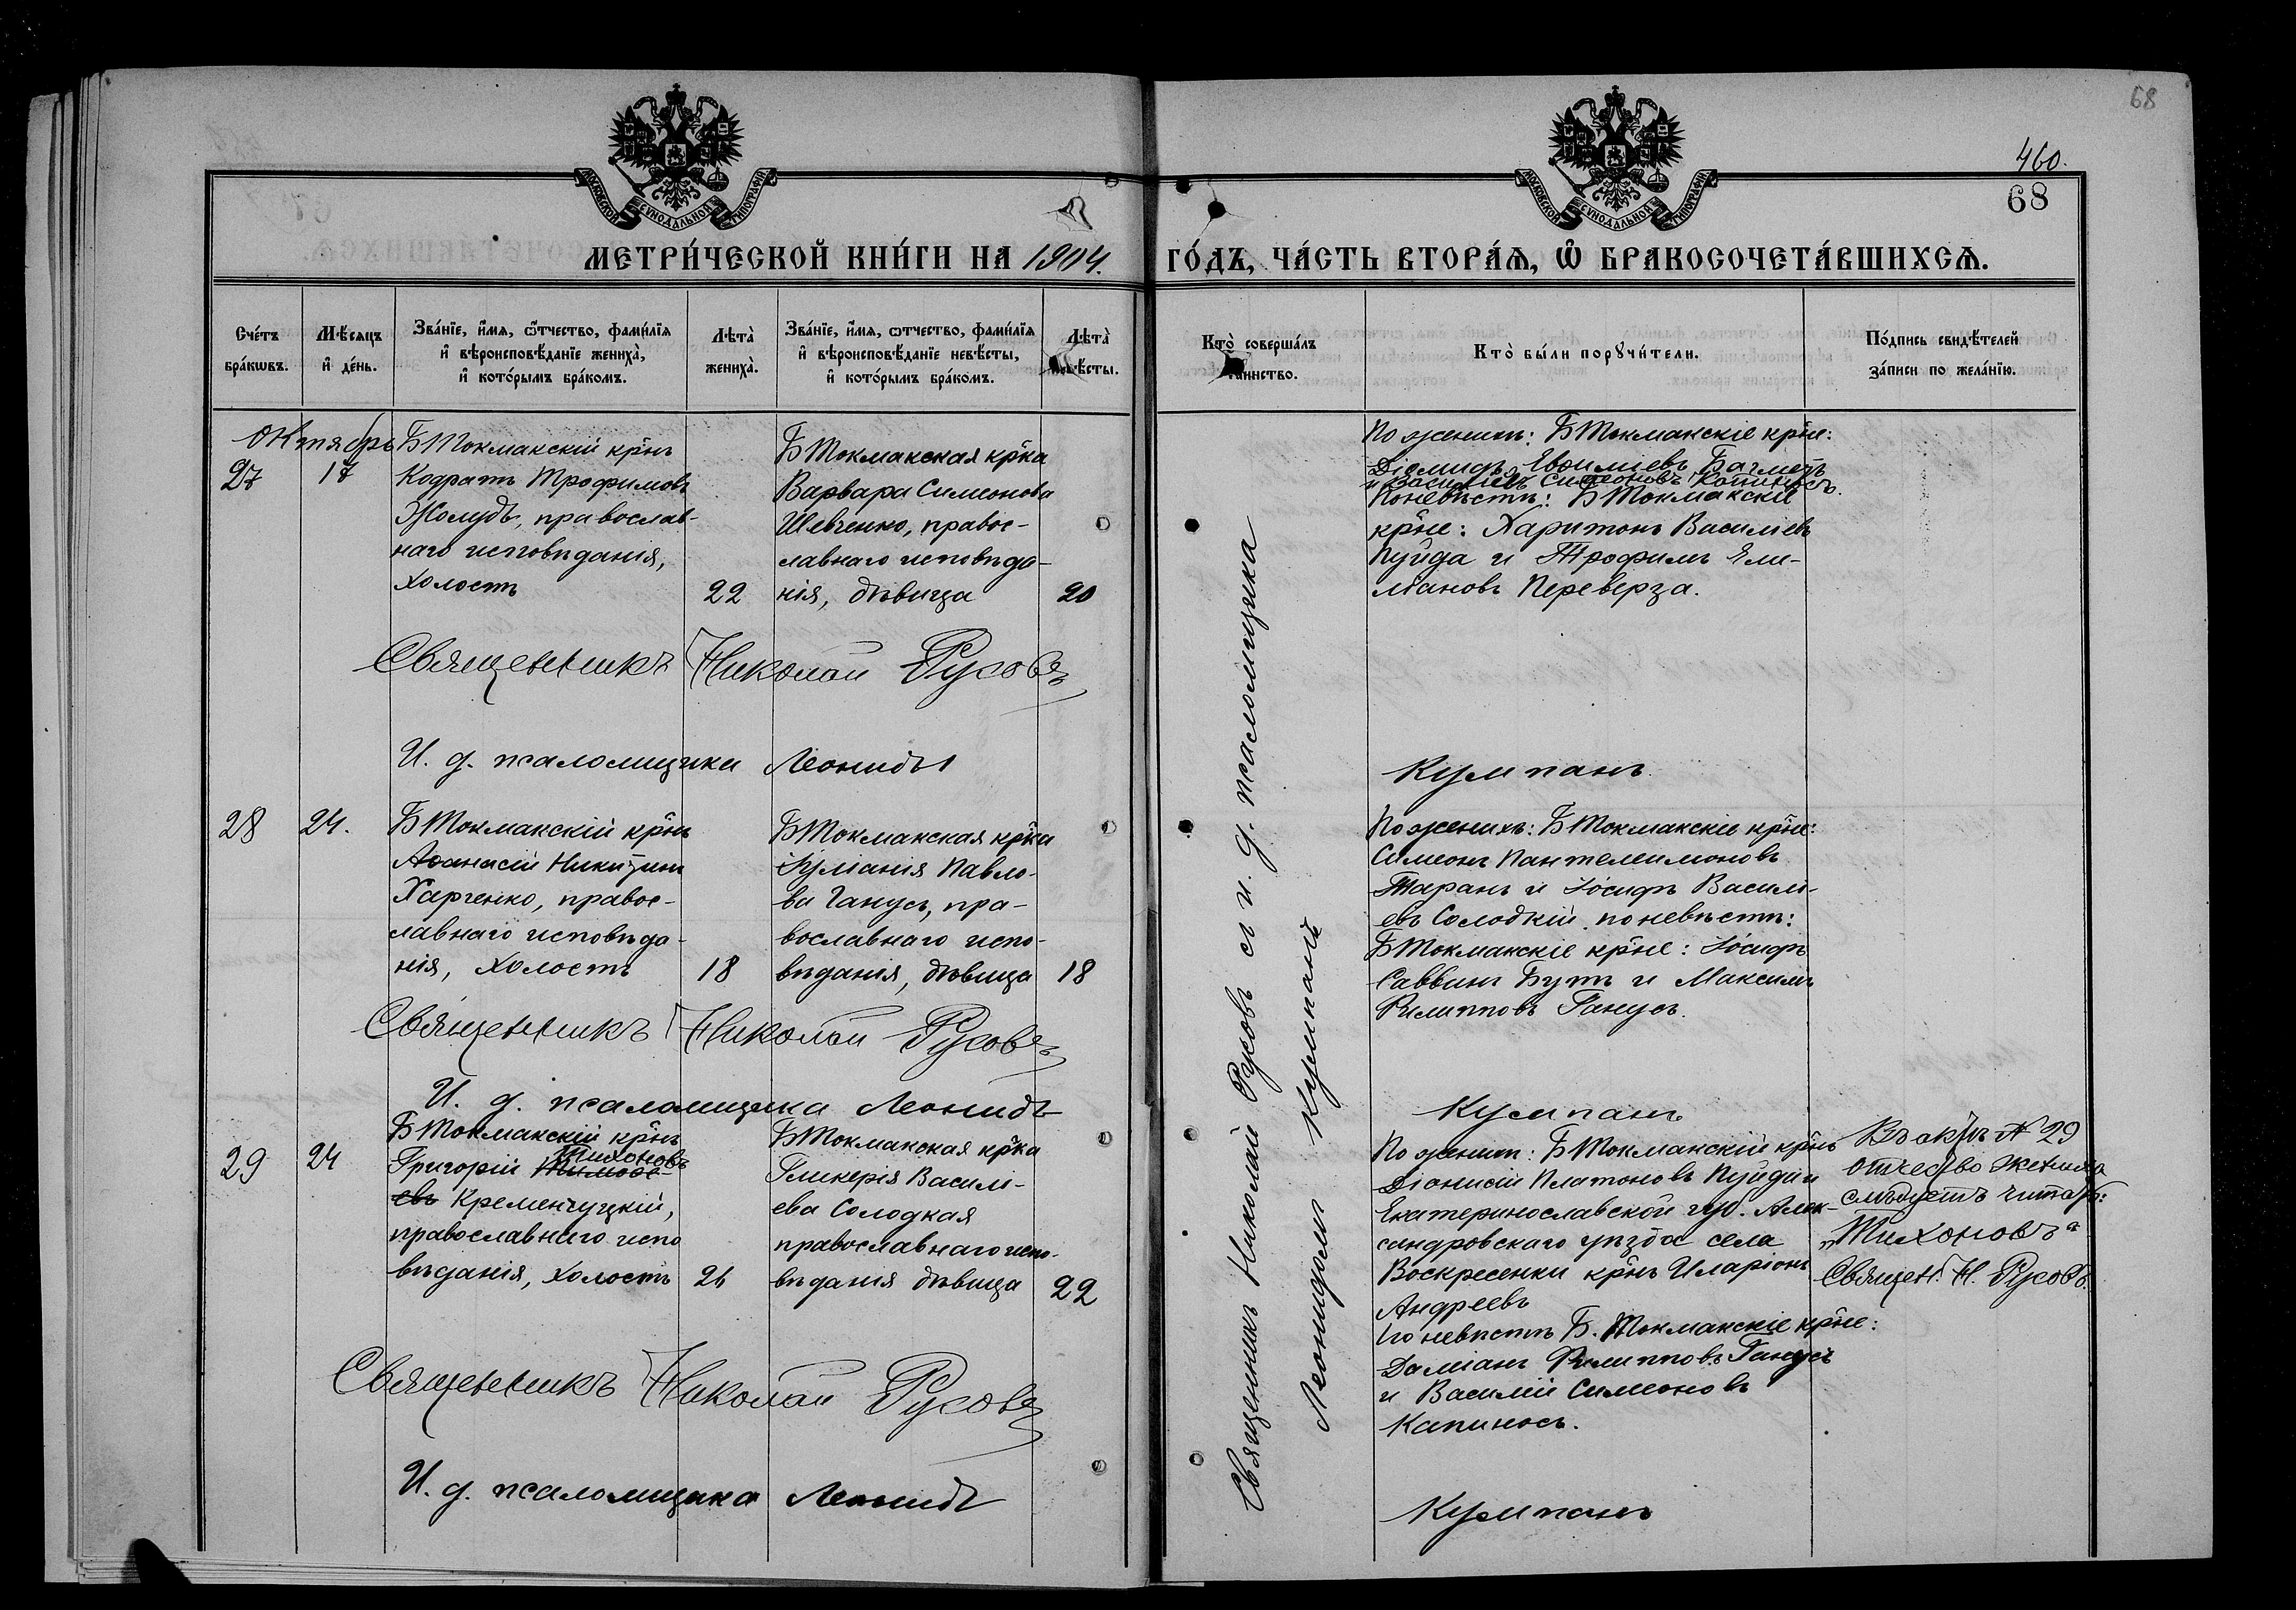 68
460.
68
МОСКОВСКОЙ СѴНОДАЛЬНОЙ ТИПОГРАФІИ
МОСКОВСКОЙ СѴНОДАЛЬНОЙ ТИПОГРАФІИ
МЕТРИ́ЧЕСКОЙ КНИ́ГИ НА 1904. ГО́ДЪ, ЧА́СТЬ ВТОРА́Ѧ, Ѽ БРАКОСОЧЕТА́ВШИХСѦ.
Сче́тъ
бра́кѡвъ.
Мѣ́сяцъ
и҆ де́нь.
Зва́нїе, и҆́мя, ѻ҆́тчество, фами́лїя
и҆ вѣроисповѣ́данїе жениха̀,
и҆ кото́рымъ бра́комъ.
Лѣта̀
жениха̀.
Зва́нїе, и҆́мя, ѻ҆́тчество, фами́лїя
и҆ вѣроисповѣ́данїе невѣ́сты,
и҆ кото́рымъ бра́комъ.
Лѣта̀
невѣ́сты.
Кто̀ соверша́лъ
таинство.
Кто̀ бы́ли порꙋчи́тели.
По́дпись свидѣ́телей
за́писи по жела́нїю.
Октябрь
27
17
Б Токмакскій кр̃нъ
Кодратъ Трофимовъ
Жолудь, православ-
наго исповѣданія,
холостъ
22
Б Токмакская кр̃ка
Варвара Симеонова
Шевченко, правос-
лавнаго исповѣда-
нія, дѣвица
20
По женихѣ: Б Токмакскіе кр̃не:
Діомидъ Евѳиміевъ Багметъ
и Василій Симеоновъ Капиносъ.
По невѣстѣ: Б Токмакскіе
кр̃не: Харитонъ Василіевъ
Пуйда и Трофимъ Ели-
мановъ Переверза.
Священникъ Николай Русовъ
И. д. псаломщика Леонидъ Кумпанъ
28
24.
Б Токмакскій кр̃нъ
Аѳанасій Никитинъ
Харченко, правос-
лавнаго исповѣда-
нія, холостъ
18
Б Токмакская кр̃ка
Іуліанія Павло-
ва Ганусъ, пра-
вославнаго испо-
вѣданія, дѣвица
18
По женихѣ: Б Токмакскіе кр̃не:
Симеонъ Пантелеимоновъ
Таранъ и Іосифъ Василі-
евъ Солодкій. по невѣстѣ:
Б Токмакскіе кр̃не: Іосифъ
Саввинъ Бутъ и Максимъ
Филипповъ Ганусъ.
Священникъ Николай Русовъ
И. д. псаломщика Леонидъ Кумпанъ
29
24
Б Токмакскій кр̃нъ
Тихоновъ
Григорій Тимоѳе-
евъ Кременчуцкій,
православнаго испо
вѣданія, холостъ
26
Б Токмакская кр̃ка
Гликерія Василі-
ева Солодкая
православнаго испо-
вѣданія дѣвица
22
По женихѣ: Б Токмакскій кр̃нъ
Діонисій Платоновъ Пуйда и
Екатеринославской губ. Алек-
сандровскаго уѣзда села
Воскресенки кр̃нъ Иларіонъ
Андреевъ
По невѣстѣ Б. Токмакскіе кр̃не:
Даміанъ Филипповъ Ганусъ
и Василій Симеоновъ
Капиносъ.
Въ актѣ № 29
отчество жениха
слѣдуетъ читать:
„Тихоновъ“
Священ. Н. Русовъ.
Священникъ Николай Русовъ
И. д. псаломщика Леонидъ Кумпанъ
Священникъ Николай Русовъ съ и. д. псаломщика
Леонидомъ Кумпанъ